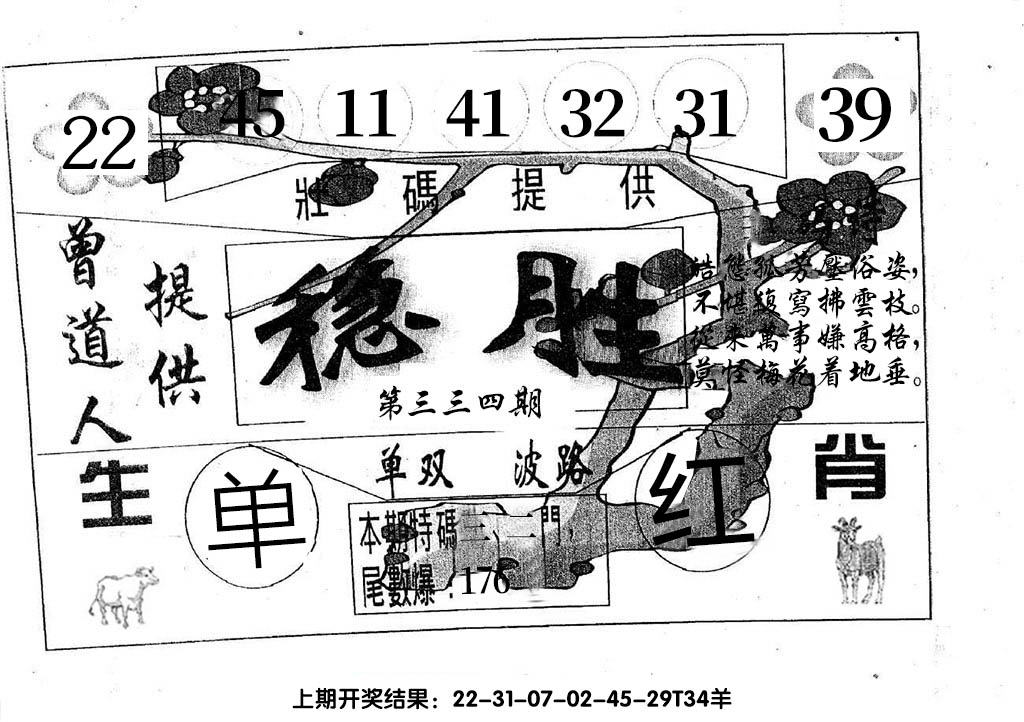 22 45 11 41 32 31 39
壯碼提供
曾道人
提供
稳胜
第三三四期
態孤芳壓俗姿，
不堪複寫拂雲枝。
從來萬事嫌高格，
莫怪梅花着地垂。
单双 波路
生
单
红
肖
本期特碼三、二門，
尾數爆：176
上期开奖结果：22-31-07-02-45-29T34羊